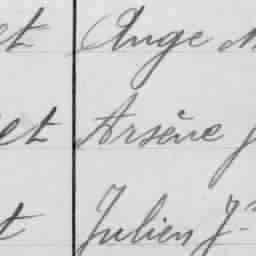 et Ange
et Arsène J
t Julien J.